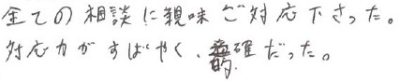 全ての相談に親味ご対応下さった。
対応力がすばやく、的確だった。